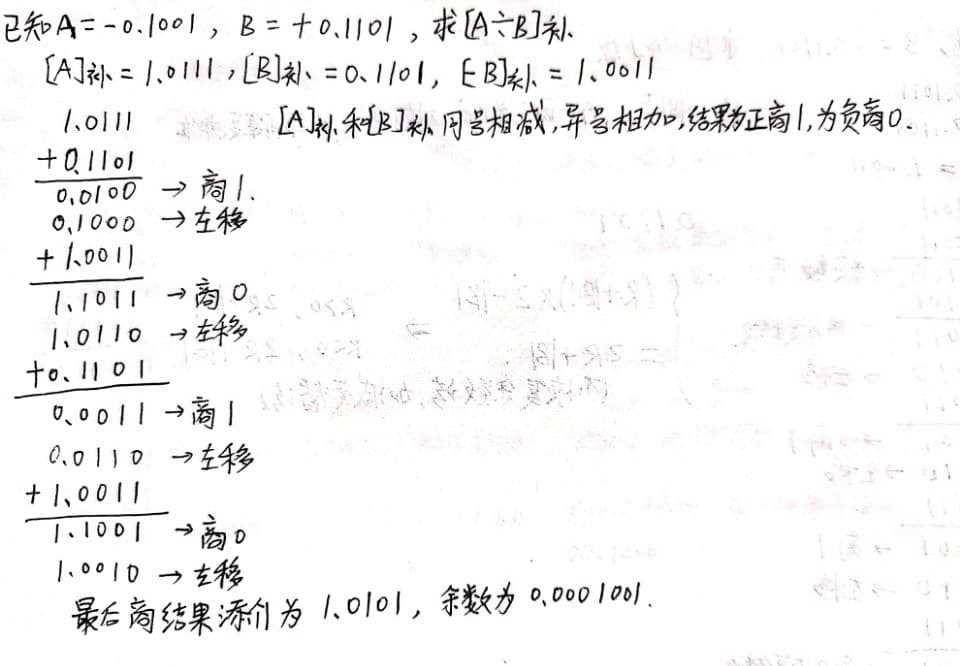 已知A=-0.1001, B=+0.1101, 求[A÷B]补
[A]补=1.0111, [B]补=0.1101, [-B]补=1.0011
[A]补和[B]补同号相减,异号相加,结果为正商1,为负商0.
1.0111
+0.1101
0.0100 →商1.
0.1000 →左移
+1.0011
1.1011 →商0
1.0110 →左移
+0.1101
0.0011 →商1
0.0110 →左移
+1.0011
1.1001 →商0
1.0010 →左移
最后商结果添1为1.0101, 余数为0.0001001.